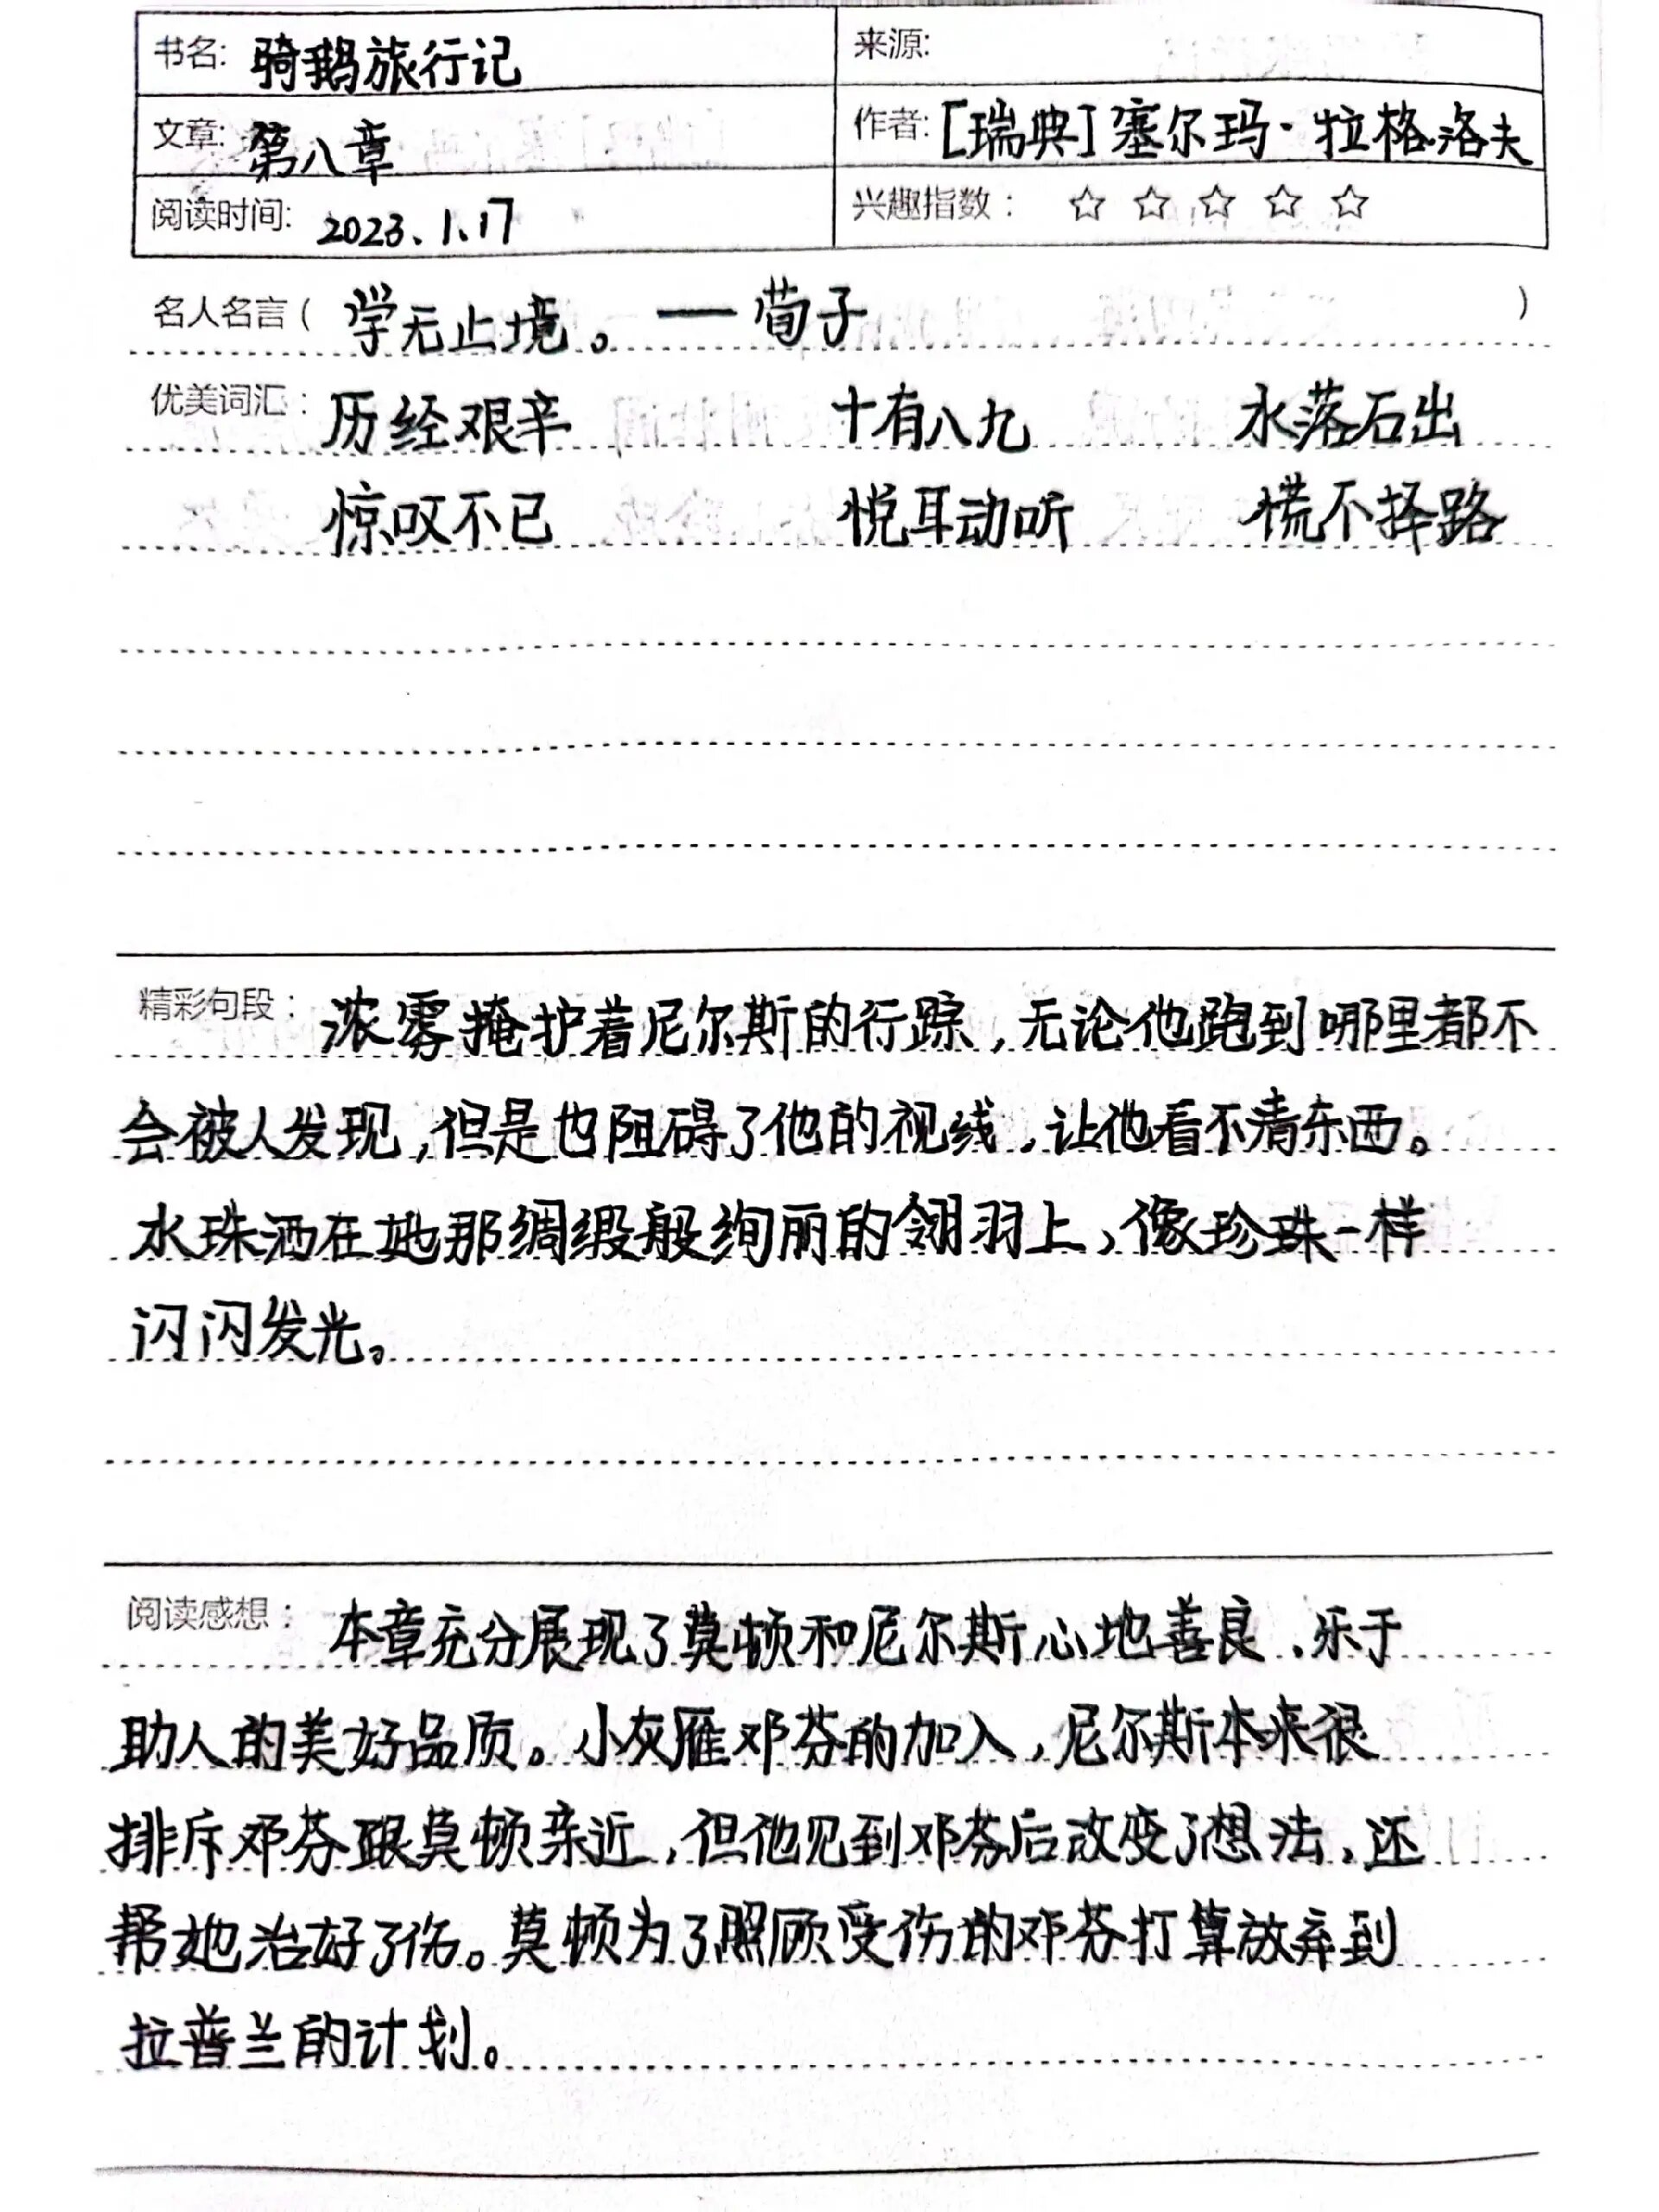 书名: 骑鹅旅行记 来源:
文章: 第八章 作者: [瑞典]塞尔玛·拉格洛夫
阅读时间: 2023.1.17 兴趣指数: ☆ ☆ ☆ ☆ ☆
名人名言( 学无止境。——荀子 )
优美词汇: 历经艰辛 十有八九 水落石出
惊叹不已 悦耳动听 慌不择路
精彩句段: 浓雾掩护着尼尔斯的行踪,无论他跑到哪里都不
会被人发现,但是也阻碍了他的视线,让他看不清东西。
水珠洒在她那绸缎般绚丽的翎羽上,像珍珠一样
闪闪发光。
阅读感想: 本章充分展现了莫顿和尼尔斯心地善良、乐于
助人的美好品质。小灰雁邓芬的加入,尼尔斯本来很
排斥邓芬跟莫顿亲近,但他见到邓芬后改变了想法,还
帮她治好了伤。莫顿为了照顾受伤的邓芬打算放弃到
拉普兰的计划。